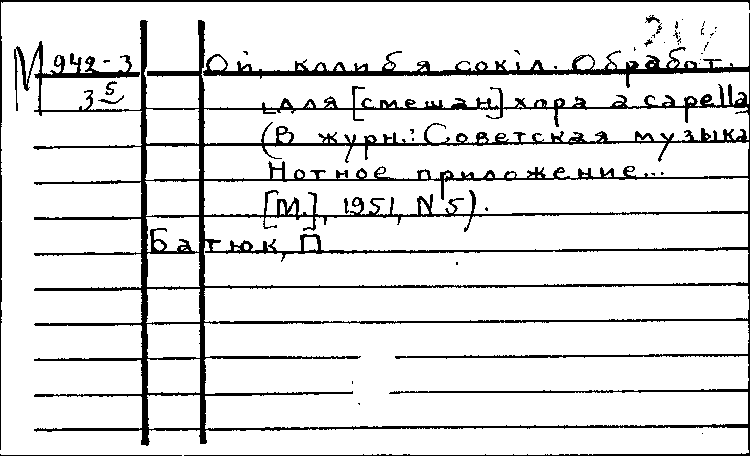 М 942-3 Ой, коли б я сокіл. Обработ.
35 для [смешан] хора a capella
(В журн.: Советская музыка
Нотное приложение...
[М.], 1951, N 5).
Батюк, П